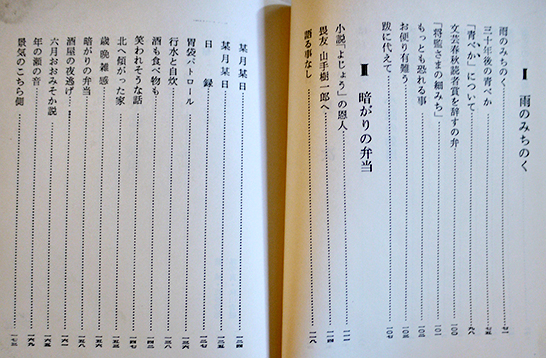 Ⅱ 雨のみちのく
雨のみちのく……七一
三十年後の青べか……七五
「青べか」について……九八
文芸春秋読者賞を辞すの弁……一〇〇
「将監さまの細みち」……一〇一
もっとも恐れる事……
お便り有難う……一〇三
跋に代えて……一〇七
暗がりの弁当
小説「よじょう」の恩人……一一一
畏友 山手樹一郎へ……一一四
語る事なし……一一八
某月某日……一二四
某月某日……
日録……一二七
胃袋パトロール……
行水と自炊……一三八
酒も食べ物も……一四二
笑われそうな話……一四五
北へ傾がった家……
歳晩雑感……一五五
暗がりの弁当……一五八
酒屋の夜逃げ……一六一
六月おおみそか説……一六五
年の瀬の音……一六九
景気のこちら側……一七三